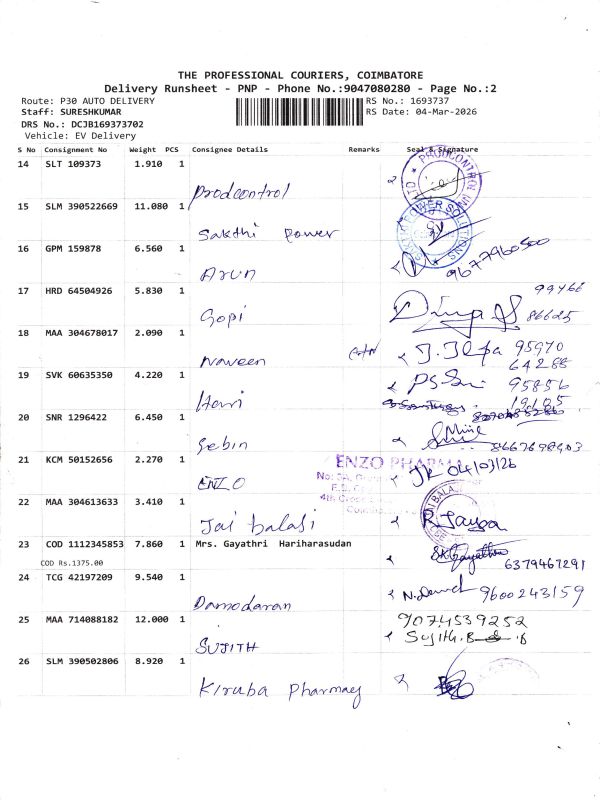 THE PROFESSIONAL COURIERS, COIMBATORE
Delivery Runsheet - PNP - Phone No.:9047080280 - Page No.:2
Route: P30 AUTO DELIVERY
RS No.: 1693737
Staff: SURESHKUMAR
RS Date: 04-Mar-2026
DRS No.: DCJB169373702
Vehicle: EV Delivery
S No Consignment No Weight PCS Consignee Details Remarks Seal & Signature
14 SLT 109373 1.910 1
Prodcontrol
PRODCONTROL
15 SLM 390522669 11.080 1
Sakthi Power
POWER SOLUTIONS
16 GPM 159878 6.560 1
Arun
9677960500
17 HRD 64504926 5.830 1
Gopi
99466
86625
18 MAA 304678017 2.090 1
Naveen
95970
64288
19 SVK 60635350 4.220 1
Hari
95856
19105
20 SNR 1296422 6.450 1
Sebin
21 KCM 50152656 2.270 1
ENZO
ENZO PHARMA
04/03/26
22 MAA 304613633 3.410 1
Jai balaji
23 COD 1112345853 7.860 1 Mrs. Gayathri Hariharasudan
COD Rs.1375.00
6379467291
24 TCG 42197209 9.540 1
Damodaran
9600243159
25 MAA 714088182 12.000 1
SUJITH
9074539252
Sujith.B
26 SLM 390502806 8.920 1
Kiruba Pharmacy